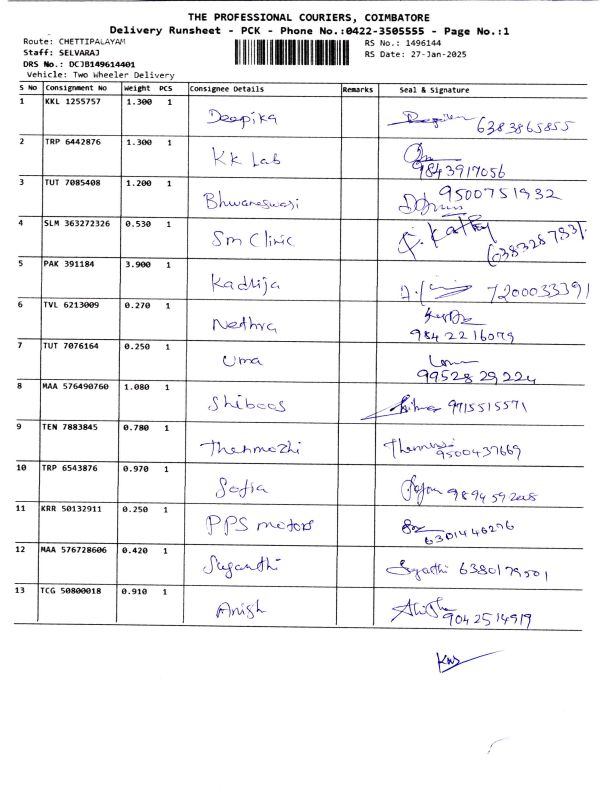 THE PROFESSIONAL COURIERS, COIMBATORE
Delivery Runsheet - PCK - Phone No.:0422-3505555 - Page No.:1
Route: CHETTIPALAYAM
Staff: SELVARAJ
DRS No.: DCJB149614401
Vehicle: Two Wheeler Delivery
RS No.: 1496144
RS Date: 27-Jan-2025
S No Consignment No Weight PCS Consignee Details Remarks Seal & Signature
1 KKL 1255757 1.300 1 Deepika 6383865855
2 TRP 6442876 1.300 1 KK Lab 9843917056
3 TUT 7085408 1.200 1 Bhuvaneswari 9500751932
4 SLM 363272326 0.530 1 Sm Clinic
5 PAK 391184 3.900 1 Kadhija 7200033391
6 TVL 6213009 0.270 1 Nethra 9842216079
7 TUT 7076164 0.250 1 Uma 9952829224
8 MAA 576490760 1.080 1 Shiboos 9715515571
9 TEN 7883845 0.780 1 Thenmozhi 9500437669
10 TRP 6543876 0.970 1 Sofia
11 KRR 50132911 0.250 1 PPS motors 6301446276
12 MAA 576728606 0.420 1 Suganthi 6380179501
13 TCG 50800018 0.910 1 Anish 9042514919